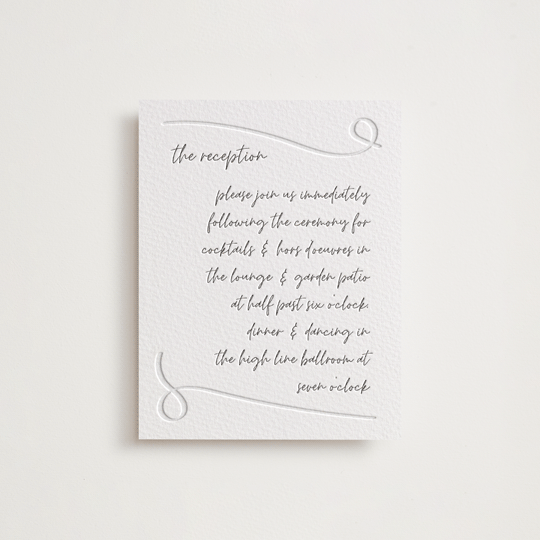 the reception
please join us immediately
following the ceremony for
cocktails & hors doeuvres in
the lounge & garden patio
at half past six o'clock.
dinner & dancing in
the high line ballroom at
seven o'clock